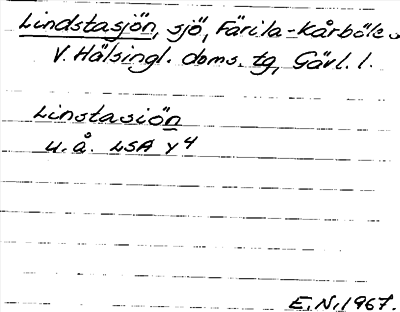 Lindstasjön, sjö, Färila-Kårböle
V. Hälsingl. doms. tg, Gävl. l.
Linstasiön
u.å. LSA Y4
E.N. 1967.